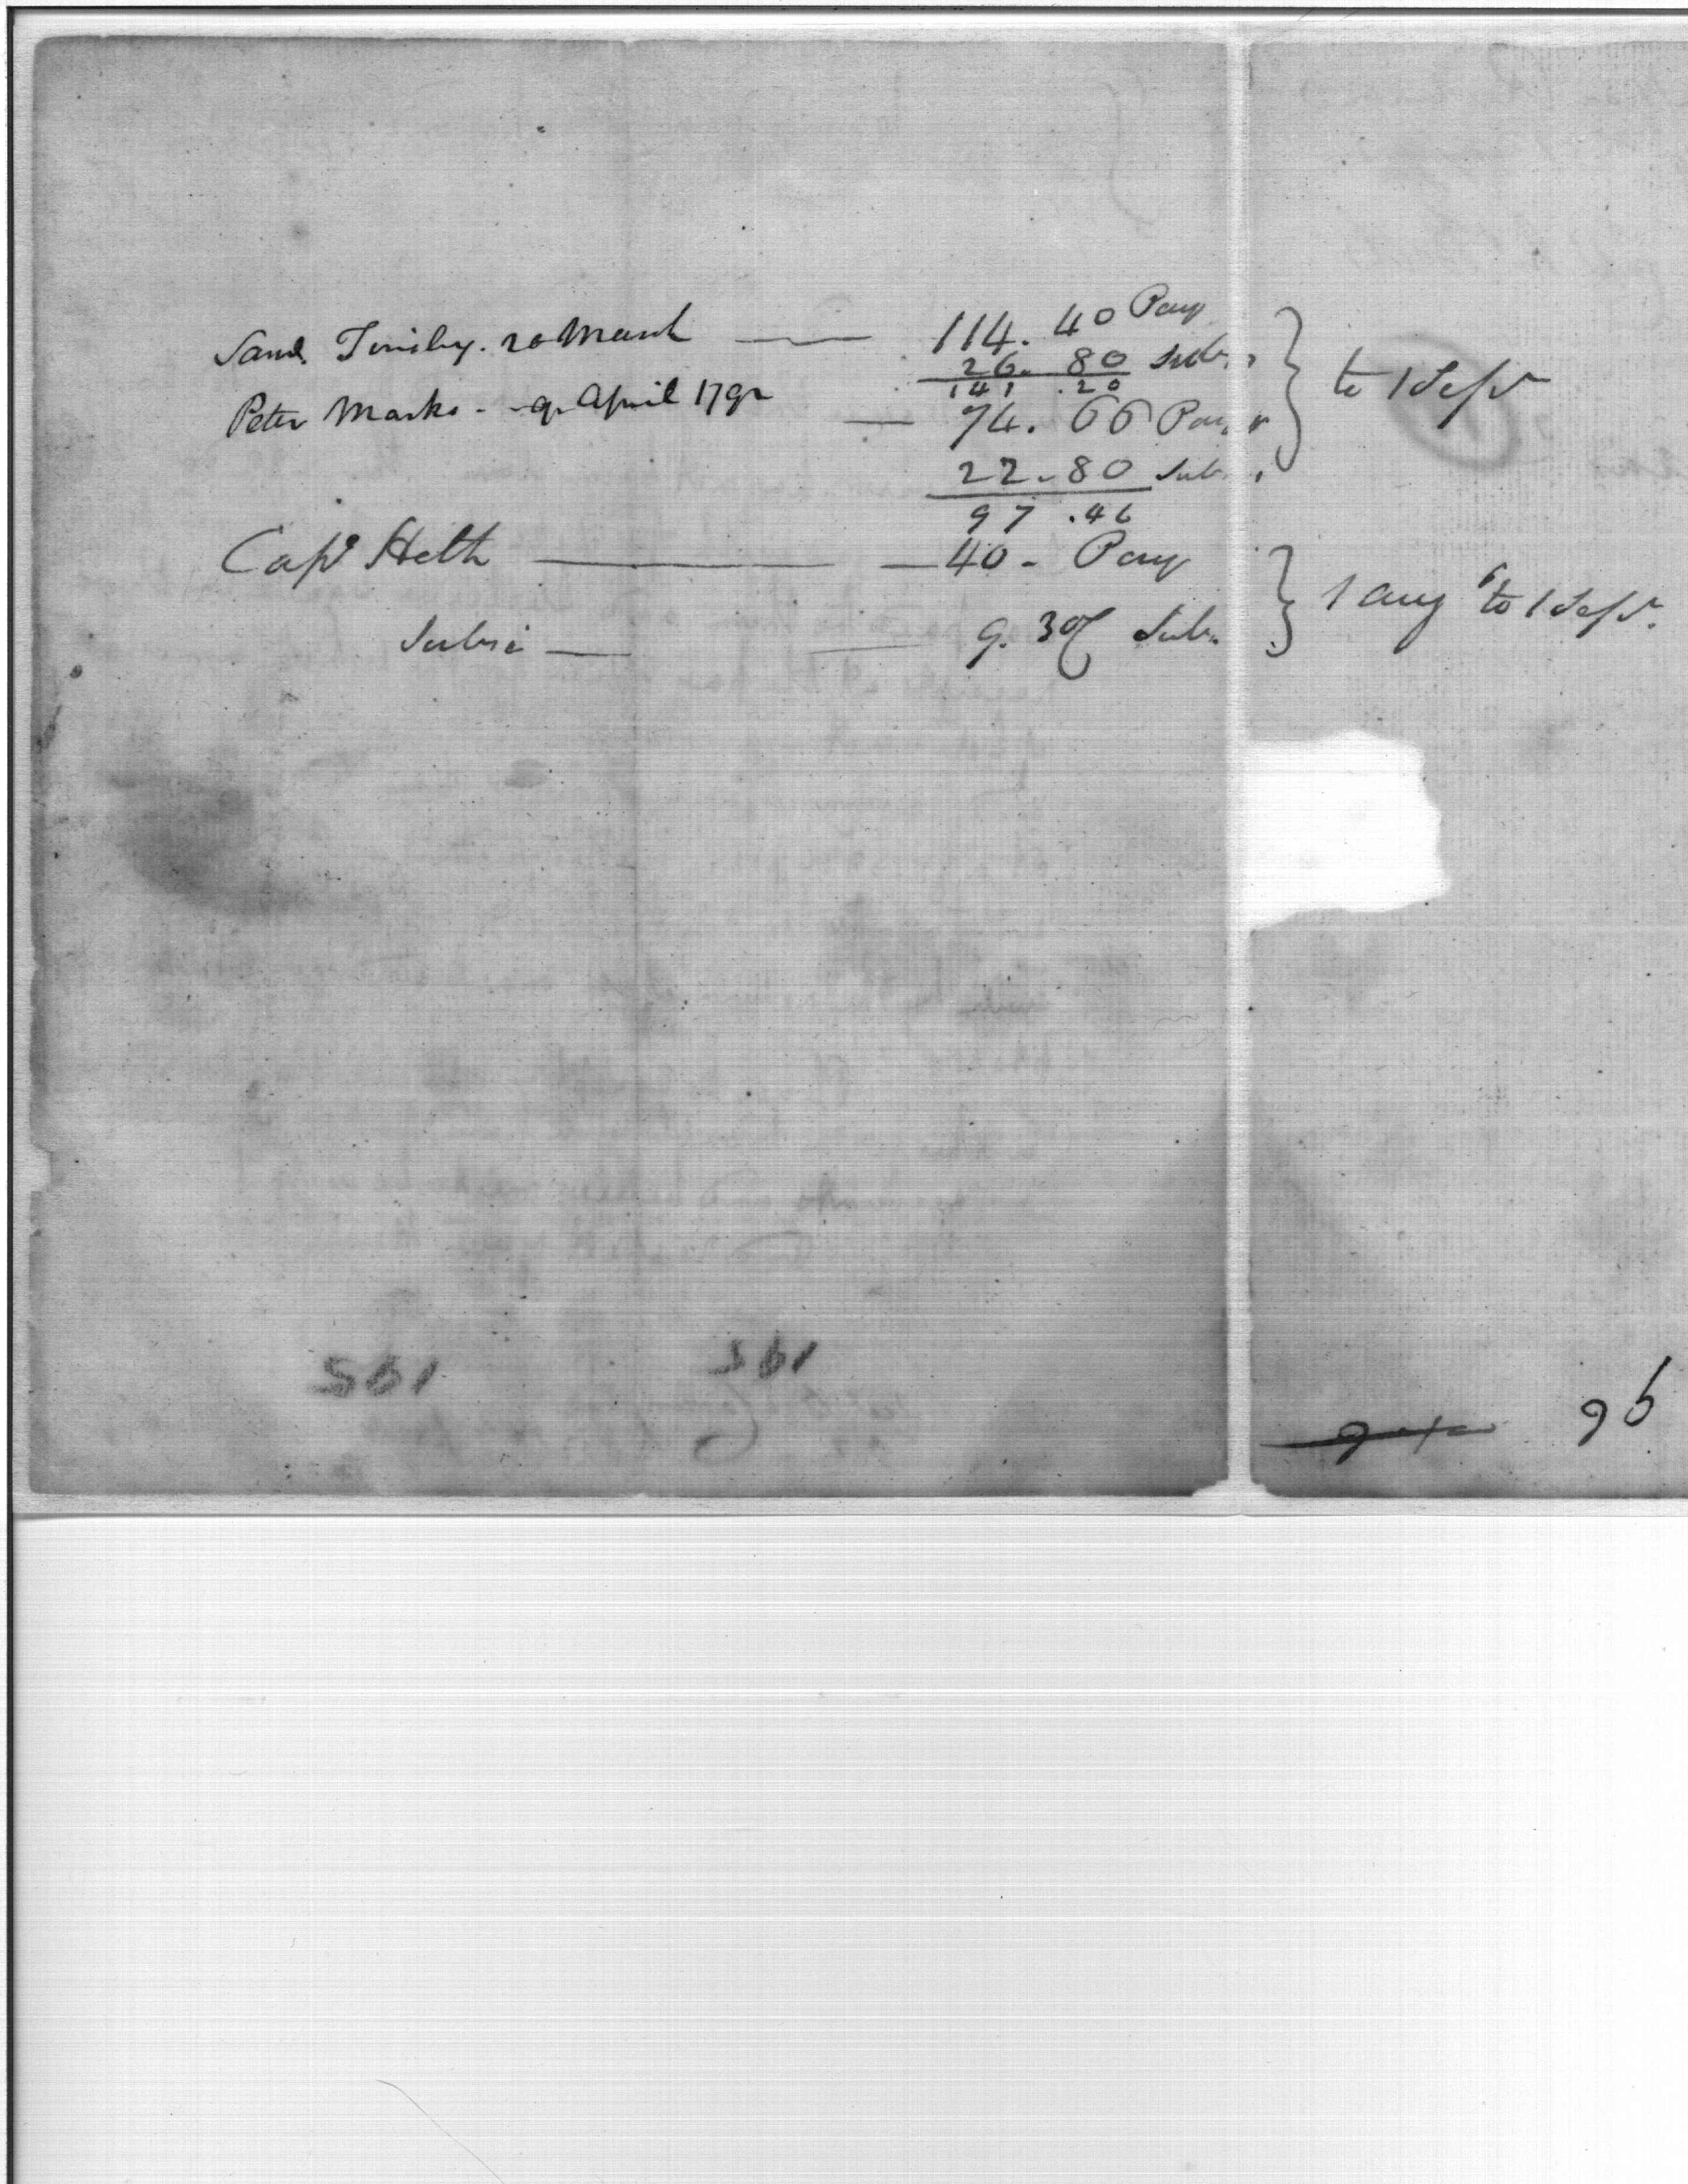 Saml. Tinsley. 20 March — 114. 40 Pay
26. 80 Sub.
141 .20 } to 1 Sept
Peter Marks - - 9 April 1792 — 74. 66 Pay
22. 80 Sub.
97 .46
Capt Heth — 40 - Pay
} 1 Aug to 1 Sept.
Subsi — 9. 30 Sub.
195 195
96